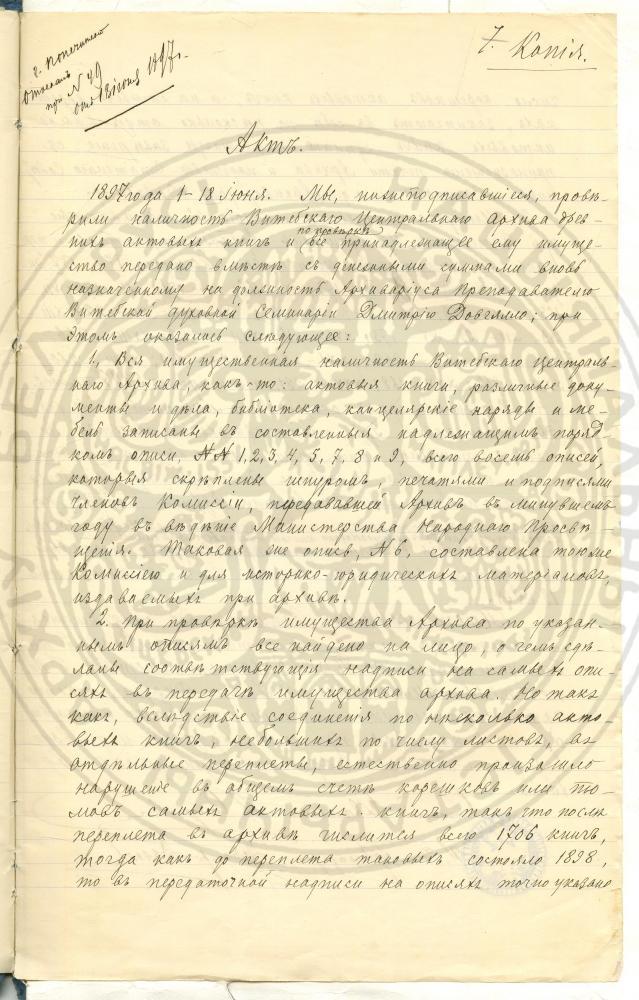 г. Попечителю
отослалъ
при № 49
отъ 18 іюня 1897 г.
7. Копія.
Актъ.
1897 года 1–18 Іюня. Мы, нижеподписавшіеся, провѣ-
рили наличность Витебскаго Центральнаго Архива древ-
нихъ актовыхъ книгъ и по провѣркѣ все принадлежащее ему имуще-
ство передано вмѣстѣ съ денежными суммами вновь
назначенному на должность Архиваріуса Преподавателю
Витебской духовной Семинаріи Дмитрію Довгялло; при
этомъ оказалось слѣдующее:
1, Вся имущественная наличность Витебскаго Централь-
наго Архива, какъ-то: актовыя книги, различные доку-
менты и дѣла, библіотека, канцелярскіе наряды и ме-
бель записаны въ составленныя надлежащимъ поряд-
комъ описи, №№ 1, 2, 3, 4, 5, 7, 8 и 9, всего восемь описей,
которыя скрѣплены шнуромъ, печатями и подписями
членовъ Комиссіи, передававшей Архивъ въ минувшемъ
году въ вѣдѣніе Министерства Народнаго Просвѣ-
щенія. Таковая же опись, № 6, составлена тою же
Комиссіею и для историко-юридическихъ матеріаловъ,
издаваемыхъ при архивѣ.
2. При провѣркѣ имущества Архива по указан-
нымъ описямъ все найдено на лицо, о чемъ сдѣ-
ланы соотвѣтствующія надписи на самыхъ опи-
сяхъ въ передачѣ имущества архива. Но такъ
какъ, вслѣдствіе соединенія по нѣсколько акто-
выхъ книгъ, небольшихъ по числу листовъ, въ
отдѣльные переплеты, естественно произошло
нарушеніе въ общемъ счетѣ корешковъ или то-
мовъ самыхъ актовыхъ книгъ, такъ что послѣ
переплета въ архивѣ числится всего 1706 книгъ,
тогда какъ до переплета таковыхъ состояло 1898,
то въ передаточной надписи на описяхъ точно указано